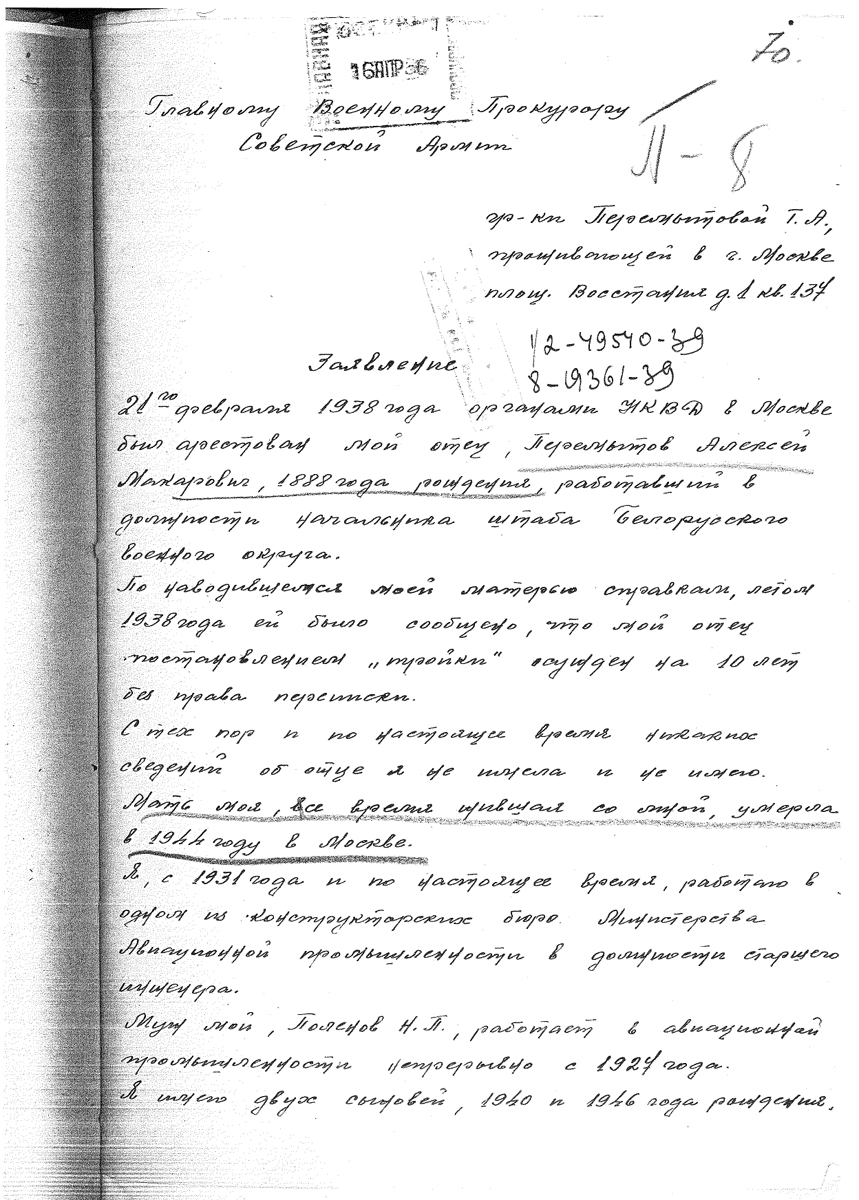 70.
16 АПР 56
Главному Военному Прокурору
Советской Армии
П-8
гр-ки Перемытовой Т.А.,
проживающей в г. Москве
площ. Восстания д. 1 кв. 137
1/2-49540-39
8-19361-39
Заявление
21го февраля 1938 года органами НКВД в Москве
был арестован мой отец, Перемытов Алексей
Макарович, 1888 года рождения, работавший в
должности начальника штаба Белорусского
военного округа.
По наводившемся моей матерью справкам, летом
1938 года ей было сообщено, что мой отец
постановлением „тройки" осужден на 10 лет
без права переписки.
С тех пор и по настоящее время никаких
сведений об отце я не имела и не имею.
Мать моя, все время жившая со мной, умерла
в 1944 году в Москве.
Я, с 1931 года и по настоящее время, работаю в
одном из конструкторских бюро Министерства
Авиационной промышленности в должности старшего
инженера.
Муж мой, Поленов Н.П., работает в авиационной
промышленности непрерывно с 1927 года.
Я имею двух сыновей, 1940 и 1946 года рождения.